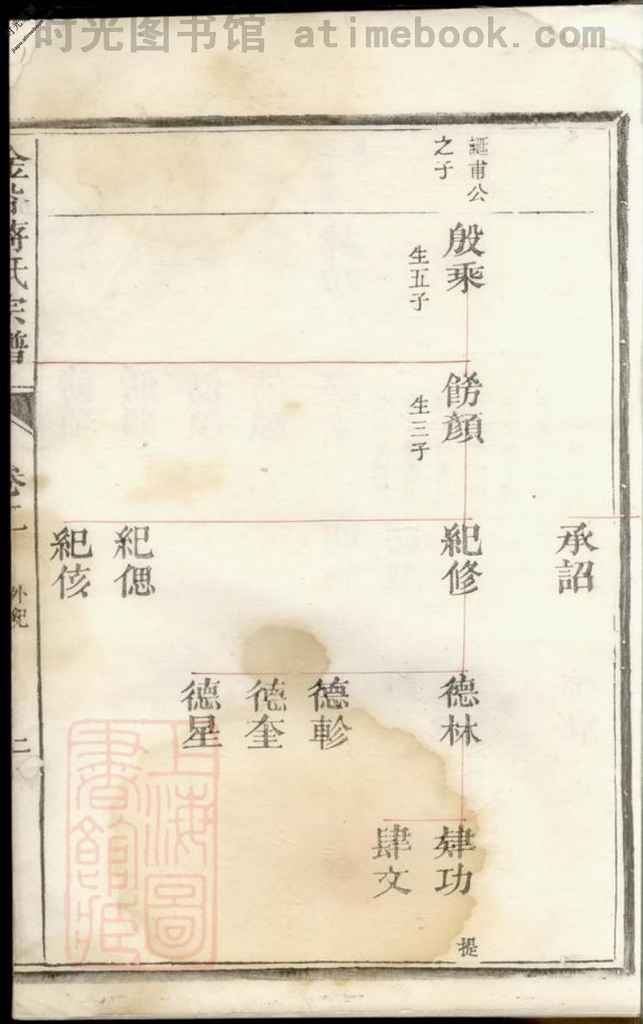 时光图书馆 atimebook.com
誕甫公
之子
殷乘
生五子
餝顏
生三子
承詔
紀修
紀偲
紀侅
德林
德軫
德奎
德星
肄功
肆文
提
蔣氏宗譜
卷二
外紀
二
上海圖
書館藏